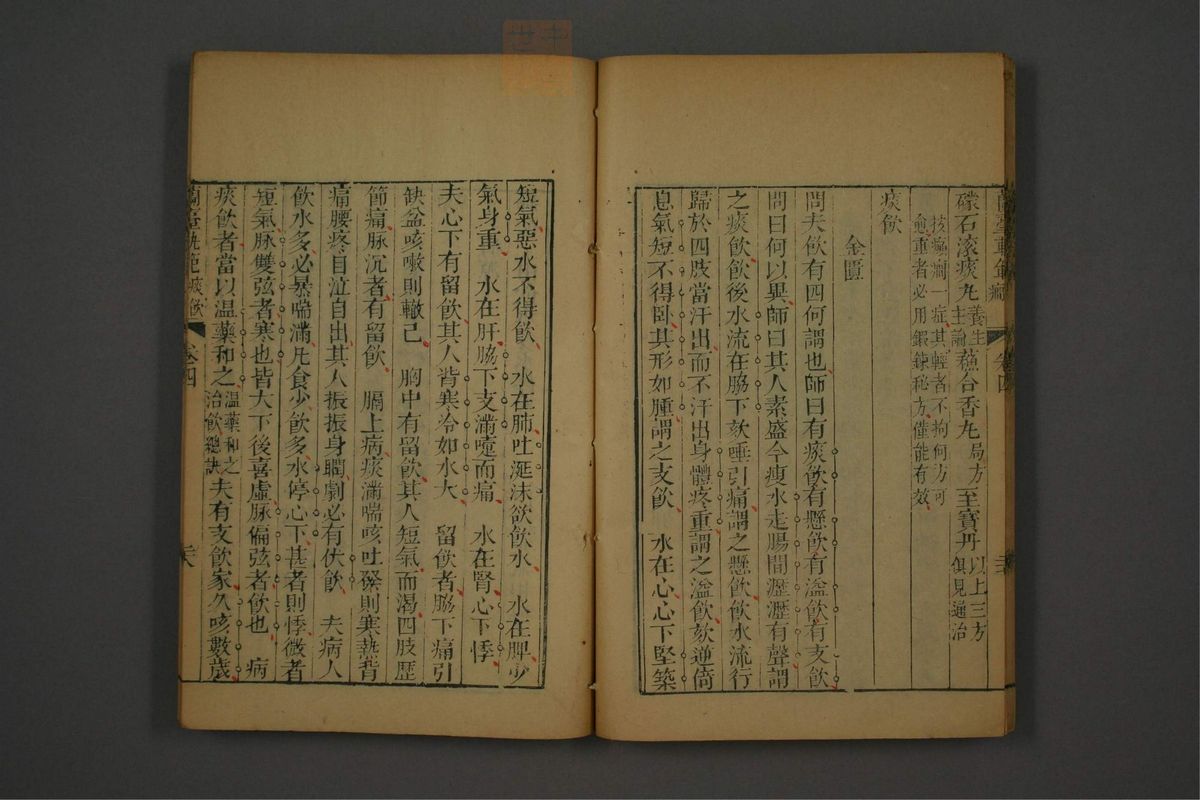 礞石滾痰丸 養生主論 蘇合香丸 局方 至寶丹 以上三方俱見通治
按癲癎一症其輕者不拘何方可
愈重者必用鍛鍊秘方僅能有效
痰飲
金匱
問夫飲有四何謂也師曰有痰飲有懸飲有溢飲有支飲
問曰何以異師曰其人素盛今瘦水走腸間瀝瀝有聲謂
之痰飲飲後水流在脇下欬唾引痛謂之懸飲飲水流行
歸於四肢當汗出而不汗出身體疼重謂之溢飲欬逆倚
息氣短不得臥其形如腫謂之支飲 水在心心下堅築
短氣惡水不得飲 水在肺吐涎沫欲飲水 水在脾少
氣身重 水在肝脇下支滿嚏而痛 水在腎心下悸
夫心下有留飲其人背寒冷如水大 留飲者脇下痛引
缺盆咳嗽則轍已 胸中有留飲其人短氣而渴四肢歷
節痛脉沉者有留飲 膈上病痰滿喘咳吐發則寒熱背
痛腰疼目泣自出其人振振身瞤劇必有伏飲 夫病人
飲水多必暴喘滿凡食少飲多水停心下甚者則悸微者
短氣脉雙弦者寒也皆大下後喜虛脉偏弦者飲也 病
痰飲者當以温藥和之 温藥和之治飲總訣 夫有支飲家久咳數歲
蘭臺軌範 痰飲 卷四 三六